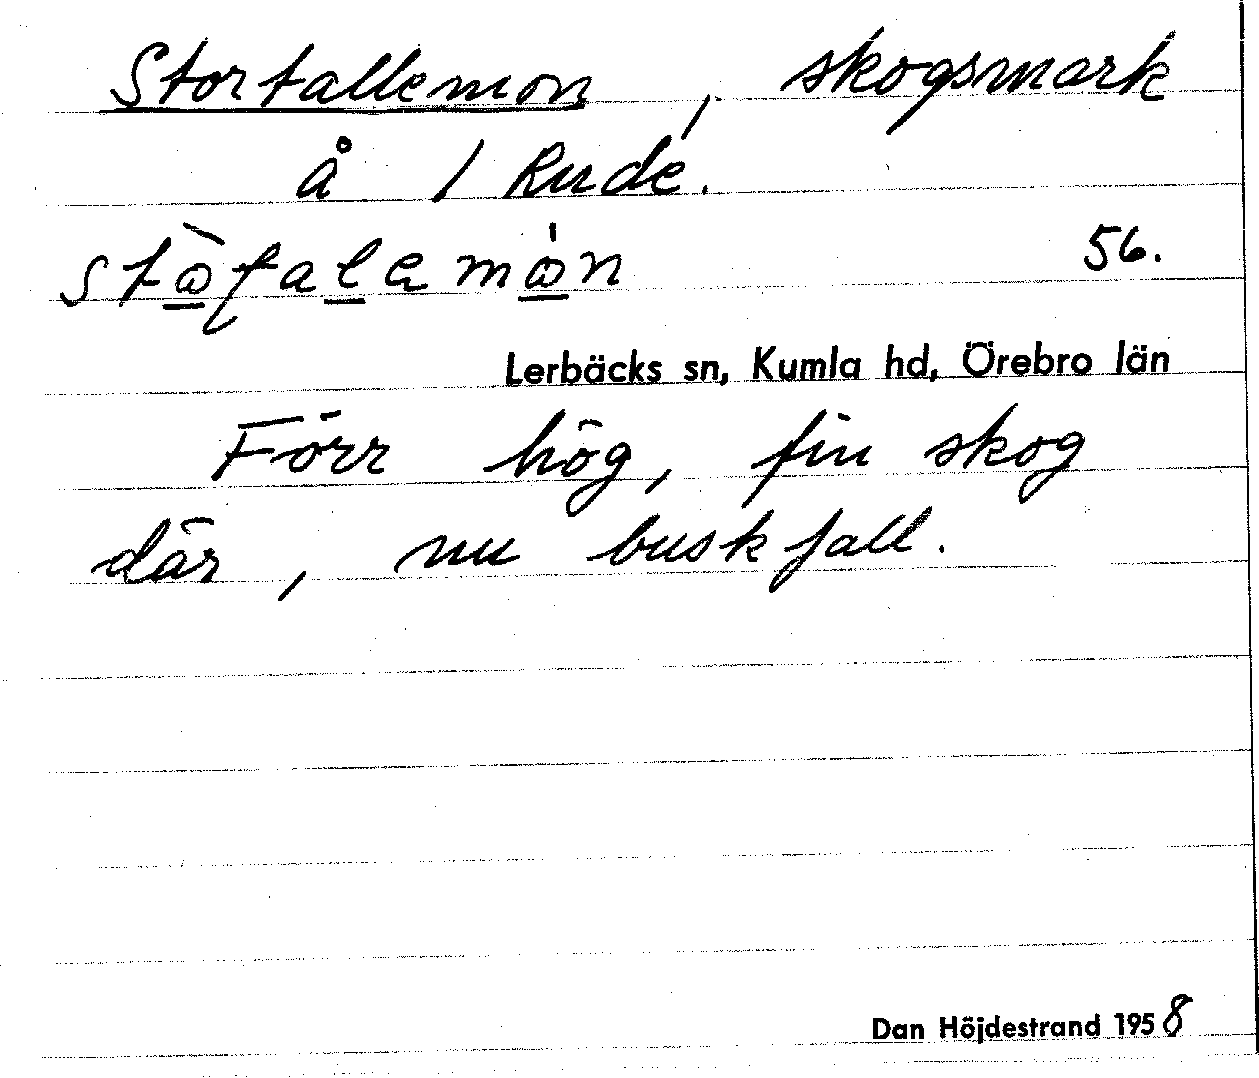 Stortallemon, skogsmark
å 1 Rude.
56.
Lerbäcks sn, Kumla hd, Örebro län
Förr hög, fin skog
där, nu buskfall.
Dan Höjdestrand 1958